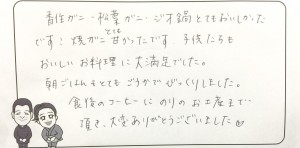 香住ガニ・松葉ガニ・ジオ鍋とてもおいしかった
です！焼ガニとても甘かったです 子供たちも
おいしいお料理に大満足でした。
朝ごはんもとてもごうかでびっくりしました。
食後のコーヒーにのりのお土産まで
頂き、大変ありがとうございました